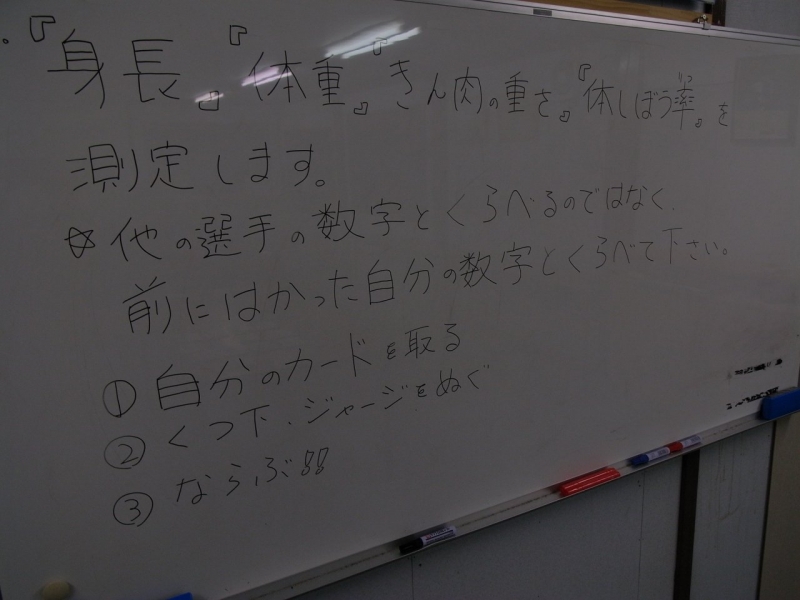 ・『身長。』『体重。』『きん肉の重さ。』『体しぼう率。』を
測定します。
☆他の選手の数字とくらべるのではなく、
前にはかった自分の数字とくらべて下さい。
①自分のカードを取る
②くつ下、ジャージをぬぐ
③ならぶ!!